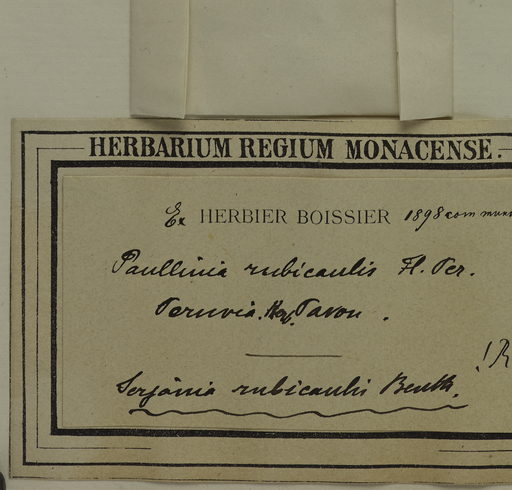 HERBARIUM REGIUM MONACENSE.
Ex HERBIER BOISSIER 1898 com
Paullinia rubicaulis Fl. Per.
Peruvia. Pavon.
Serjania rubicaulis Benth.
! R